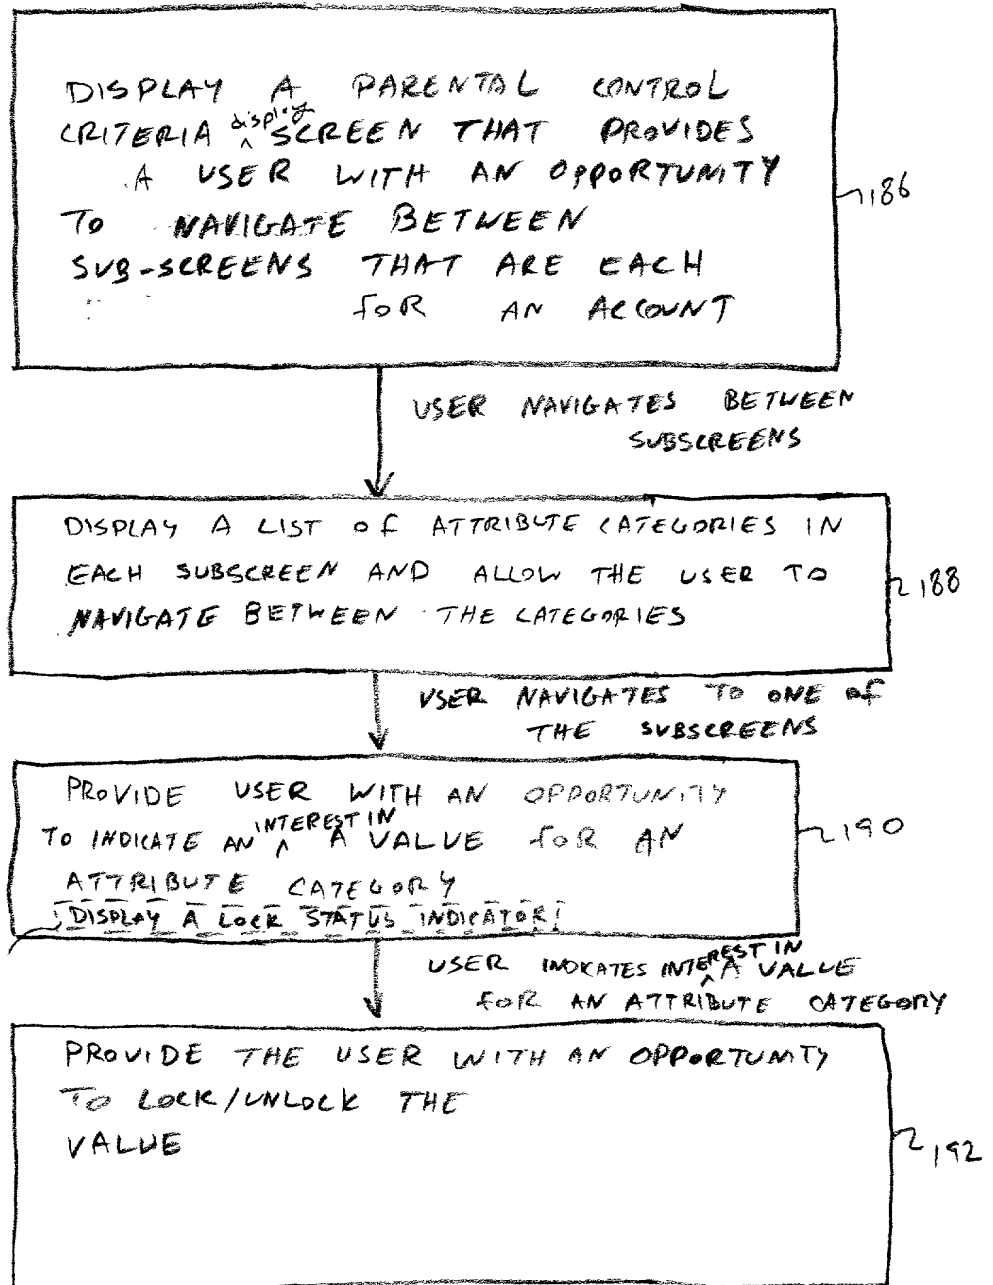 DISPLAY A PARENTAL CONTROL
CRITERIA display SCREEN THAT PROVIDES
A USER WITH AN OPPORTUNITY
TO NAVIGATE BETWEEN
SUB-SCREENS THAT ARE EACH
FOR AN ACCOUNT
186
USER NAVIGATES BETWEEN
SUBSCREENS
DISPLAY A LIST OF ATTRIBUTE CATEGORIES IN
EACH SUBSCREEN AND ALLOW THE USER TO
NAVIGATE BETWEEN THE CATEGORIES
188
USER NAVIGATES TO ONE OF
THE SUBSCREENS
PROVIDE USER WITH AN OPPORTUNITY
TO INDICATE AN INTEREST IN A VALUE FOR AN
ATTRIBUTE CATEGORY
DISPLAY A LOCK STATUS INDICATOR
190
USER INDICATES INTEREST IN A VALUE
FOR AN ATTRIBUTE CATEGORY
PROVIDE THE USER WITH AN OPPORTUNITY
TO LOCK/UNLOCK THE
VALUE
192